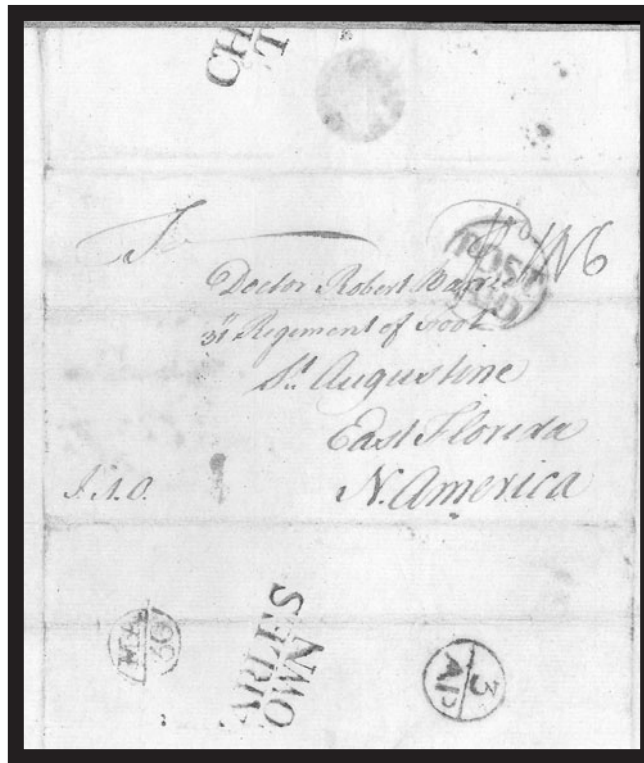 CH
T
To
POST
PD
N6
Doctor Robert
31st Regiment of Foot
St. Augustine
East Florida
N. America
MA
30
ARLES
OWN
3
AP